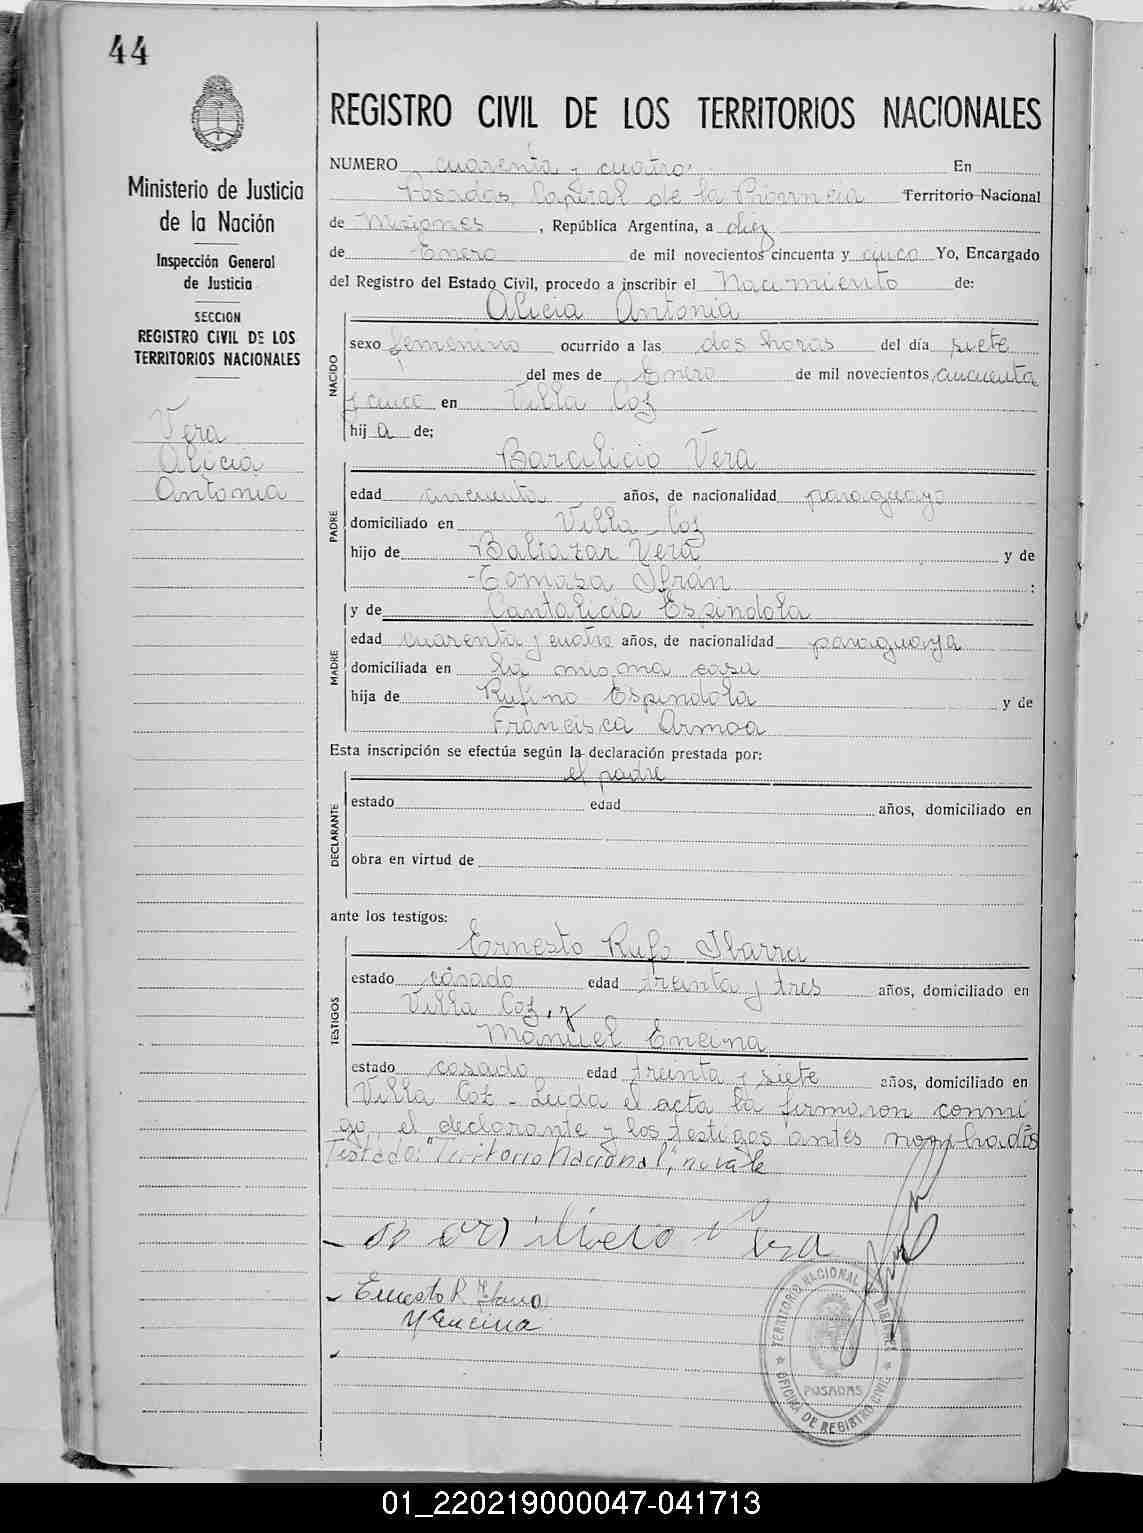 44
REGISTRO CIVIL DE LOS TERRITORIOS NACIONALES
Ministerio de Justicia
de la Nación
Inspección General
de Justicia
SECCION
REGISTRO CIVIL DE LOS
TERRITORIOS NACIONALES
Vera
Alicia
Antonia
NUMERO cuarenta y cuatro En
Posadas, Capital de la Provincia Territorio Nacional
de Misiones, República Argentina, a diez
de Enero de mil novecientos cincuenta y cinco Yo, Encargado
del Registro del Estado Civil, procedo a inscribir el Nacimiento de:
Alicia Antonia
NACIDO
sexo femenino ocurrido a las dos horas del día siete
del mes de Enero de mil novecientos, cincuenta
y cinco en Villa
hij a de;
Vera
PADRE
edad cincuenta años, de nacionalidad paraguayo
domiciliado en Villa
hijo de Baltazar Vera y de
Tomasa Ifrán :
y de Cantalicia Espindola
MADRE
edad cuarenta y cuatro años, de nacionalidad paraguaya
domiciliada en la misma casa
hija de Rufino Espindola y de
Francisca Armoa
Esta inscripción se efectúa según la declaración prestada por:
el padre
DECLARANTE
estado edad años, domiciliado en
obra en virtud de
ante los testigos:
Ernesto Rufo Ibarra
TESTIGOS
estado casado edad treinta y tres años, domiciliado en
Villa y
Manuel Encina
estado casado edad treinta y siete años, domiciliado en
Villa - Leida el acta la firmaron conmi
go, el declarante y los testigos antes nombrados
Testado: "Territorio Nacional", no vale
Vera
Ernesto R. Ibarra
M Encina
TERRITORIO NACIONAL DE MISIONES
POSADAS
OFICINA DE REGISTRO CIVIL
01_220219000047-041713